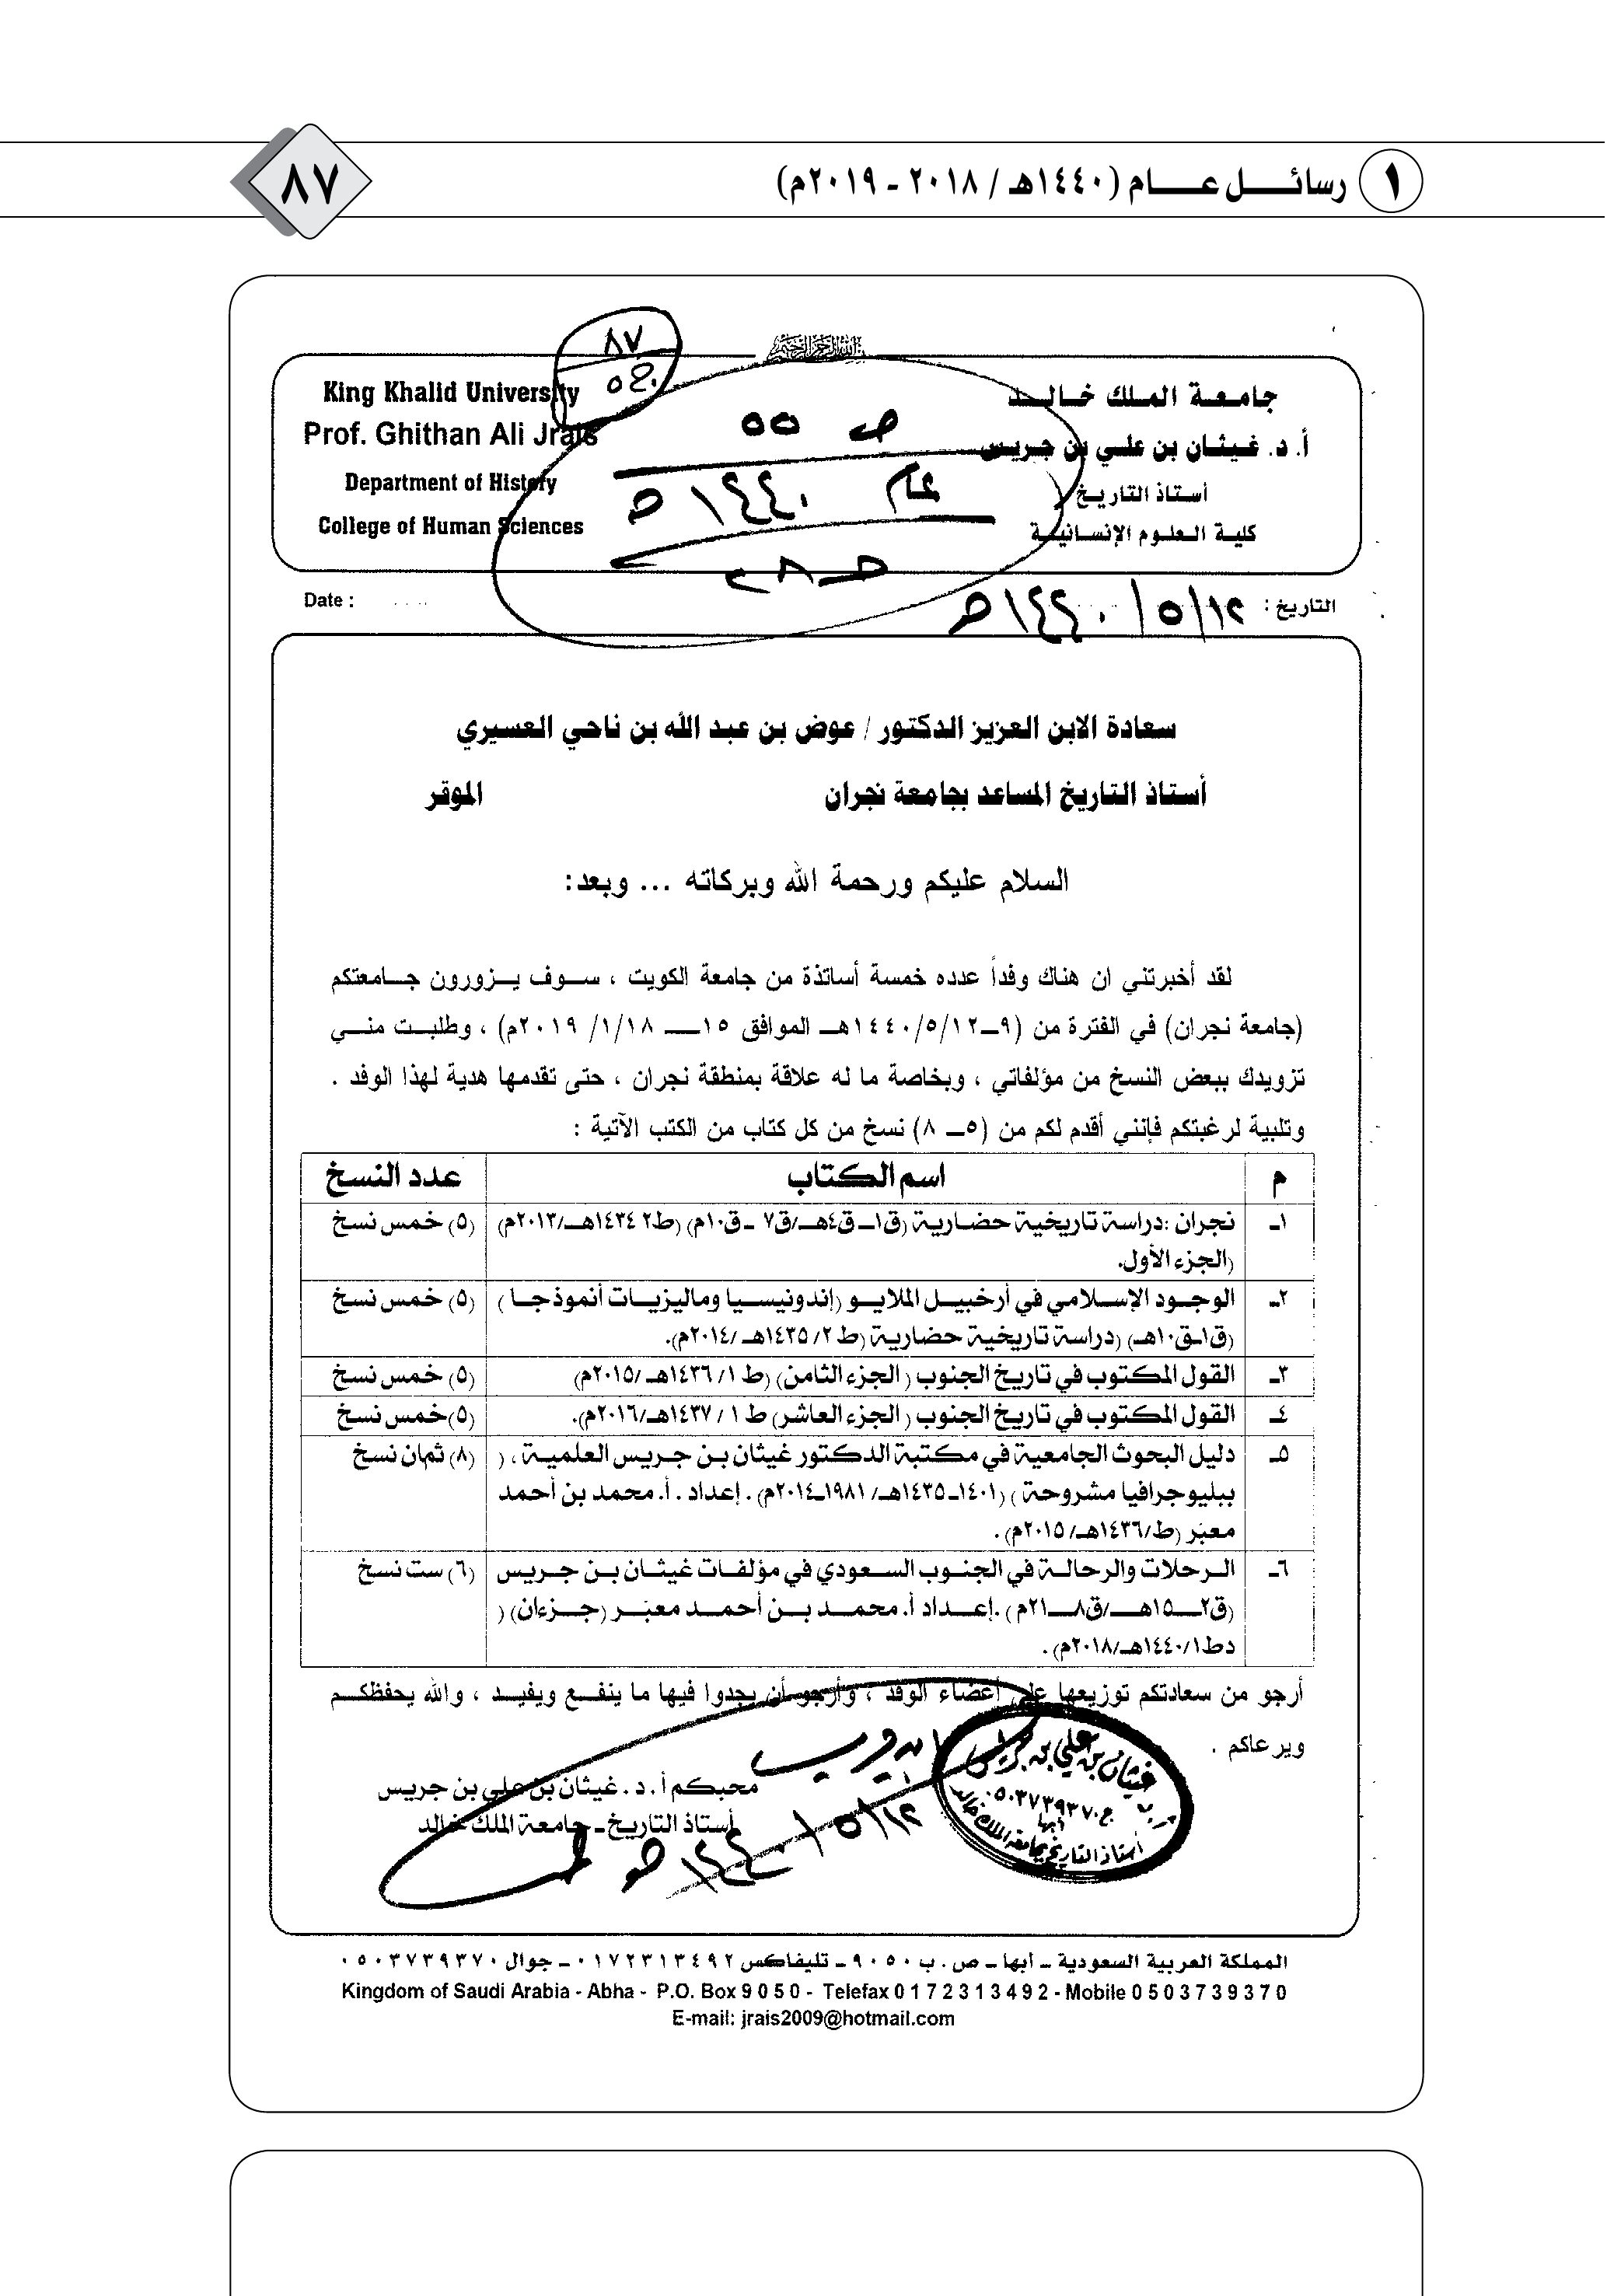 ١ رسائــــل عــــام (١٤٤٠هـ / ٢٠١٨ - ٢٠١٩م)
٨٧
٨٧
جامعة الملك خالد
أ. د. غيثان بن علي بن جريس
أستاذ التاريخ
كلية العلوم الإنسانية
King Khalid University
Prof. Ghithan Ali Jrais
Department of History
College of Human Sciences
ص ٥٥
عام ١٤٤٠هـ
التاريخ : ١٢/٥/١٤٤٠هـ
Date :
سعادة الابن العزيز الدكتور / عوض بن عبد الله بن ناحي العسيري
أستاذ التاريخ المساعد بجامعة نجران الموقر
السلام عليكم ورحمة الله وبركاته ... وبعد:
لقد أخبرتني ان هناك وفداً عدده خمسة أساتذة من جامعة الكويت ، سوف يزورون جامعتكم
(جامعة نجران) في الفترة من (٩ــ١٤٤٠/٥/١٢هـ الموافق ١٥ــ ٢٠١٩/١/١٨م) ، وطلبت مني
تزويدك ببعض النسخ من مؤلفاتي ، وبخاصة ما له علاقة بمنطقة نجران ، حتى تقدمها هدية لهذا الوفد .
وتلبية لرغبتكم فإنني أقدم لكم من (٥ــ ٨) نسخ من كل كتاب من الكتب الآتية :
م اسم الكتاب عدد النسخ
١ـ نجران :دراسة تاريخية حضارية (ق١ـ ق٤هـ/ق٧ ـق١٠م) (ط٢ ١٤٣٤هـ/٢٠١٣م) (٥) خمس نسخ
(الجزء الأول.
٢ـ الوجود الإسلامي في أرخبيل الملايو (إندونيسيا وماليزيات أنموذجا ) (٥) خمس نسخ
(ق١ـق١٠هـ) (دراسة تاريخية حضارية (ط ٢/ ١٤٣٥هـ /٢٠١٤م).
٣ـ القول المكتوب في تاريخ الجنوب ( الجزء الثامن) (ط ١/ ١٤٣٦هـ /٢٠١٥م) (٥) خمس نسخ
٤ـ القول المكتوب في تاريخ الجنوب ( الجزء العاشر) ط ١ / ١٤٣٧هـ/٢٠١٦م). (٥)خمس نسخ
٥ـ دليل البحوث الجامعية في مكتبة الدكتور غيثان بن جريس العلمية ، ( (٨) ثمان نسخ
ببليوجرافيا مشروحة ) (١٤٠١ـ١٤٣٥هـ/ ١٩٨١ـ٢٠١٤م) . إعداد . أ. محمد بن أحمد
معبّر (ط/١٤٣٦هـ/ ٢٠١٥م) .
٦ـ الرحلات والرحالة في الجنوب السعودي في مؤلفات غيثان بن جريس (٦) ست نسخ
(ق٢ــ١٥هـ/ق٨ــ٢١م ) .إعداد أ. محمد بن أحمد معبّر (جزءان) (
دط١٤٤٠/١هـ/٢٠١٨م) .
أرجو من سعادتكم توزيعها على أعضاء الوفد ، وأرجو أن يجدوا فيها ما ينفع ويفيد ، والله يحفظكم
ويرعاكم .
محبكم أ. د . غيثان بن علي بن جريس
أستاذ التاريخ ـ جامعة الملك خالد
١٢/٥/١٤٤٠هـ
غيثان بن علي بن جريس
ج.٠٥٠٣٧٣٩٣٧٠
أبها
أستاذ التاريخ بجامعة الملك خالد
المملكة العربية السعودية ـ أبها ـ ص . ب ٩٠٥٠ ـ تليفاكس ٠١٧٢٣١٣٤٩٢ ـ جوال ٠٥٠٣٧٣٩٣٧٠
Kingdom of Saudi Arabia - Abha - P.O. Box 9 0 5 0 - Telefax 0 1 7 2 3 1 3 4 9 2 - Mobile 0 5 0 3 7 3 9 3 7 0
E-mail: jrais2009@hotmail.com